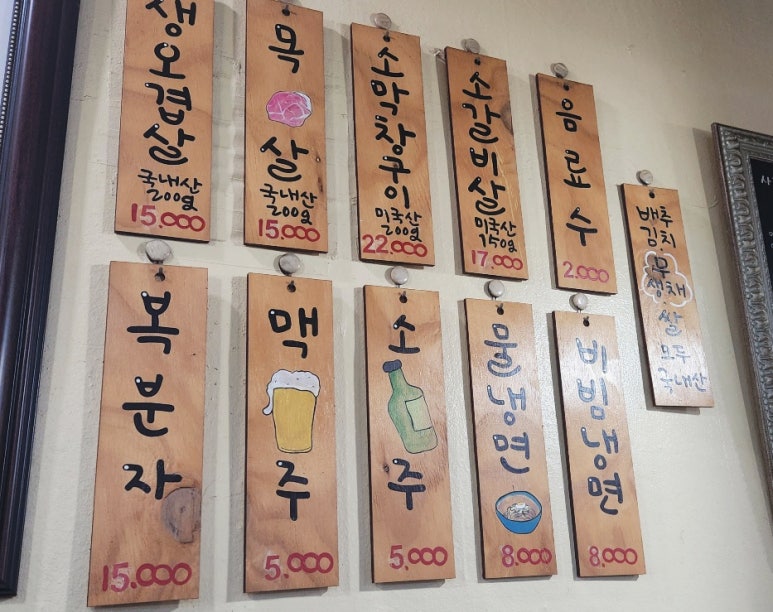 생오겹살
국내산
200g
15.000
목살
국내산
200g
15.000
소막창구이
미국산
200g
22.000
소갈비살
미국산
150g
17.000
음료수
2.000
배추
김치
무
생채
쌀
모두
국내산
복분자
15.000
맥주
5.000
소주
5.000
물냉면
8.000
비빔냉면
8.000